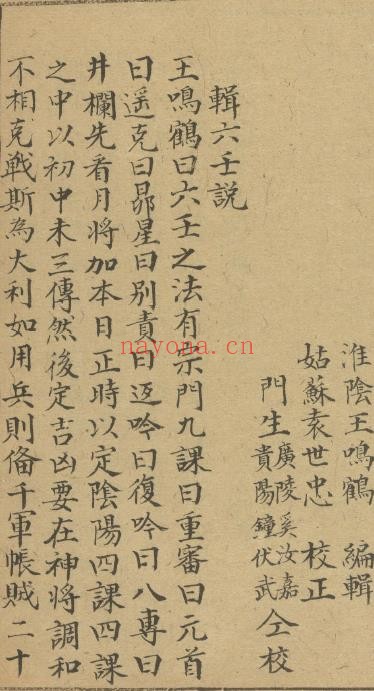 淮陰王鳴鶴 編輯
姑蘇袁世忠 校正
門生廣陵奚汝嘉貴陽鐘伏武 仝校
輯六壬説
王鳴鶴曰六壬之法有宗門九課曰重審曰元首
曰遥克曰昴星曰別責曰返吟曰復吟曰八專曰
井欄先看月将加本日正時以定陰陽四課四課
之中以初中末三傳然後定吉凶要在神將調和
不相克戦斯為大利如用兵則俻千軍帳賊二十
nayona.cn